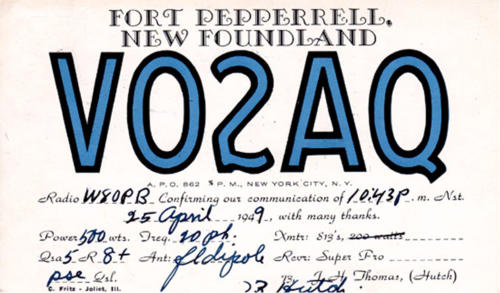 FORT PEPPERRELL,
NEW FOUNDLAND
VO2AQ
A. P. O. 862 % P. M., NEW YORK CITY, N. Y.
Radio W8OPB Confirming our communication of 10:43P.m. Nst.
25 April 1949, with many thanks.
Power 500 wts. Freq. 20 ph. Xmtr: 813's, 200 watts
Qsa 5 R 8+ Ant: fldipole Rcvr: Super Pro
pse Qsl. 73, J. H. Thomas, (Hutch)
C. Fritz - Joliet, Ill. 73 Hutch